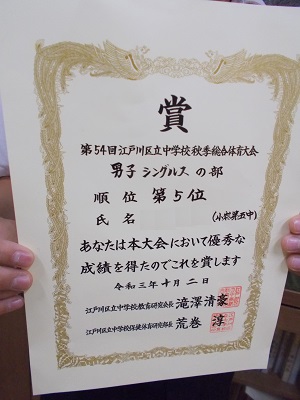 賞
第54回江戸川区立中学校秋季総合体育大会
男子 シングルス の部
順位 第5位
氏名
(小岩第五中)
あなたは本大会において優秀な
成績を得たのでこれを賞します
令和三年十月二日
江戸川区立中学校教育研究会長 滝澤清豪
江戸川区立中学校保健体育研究部長 荒巻 淳